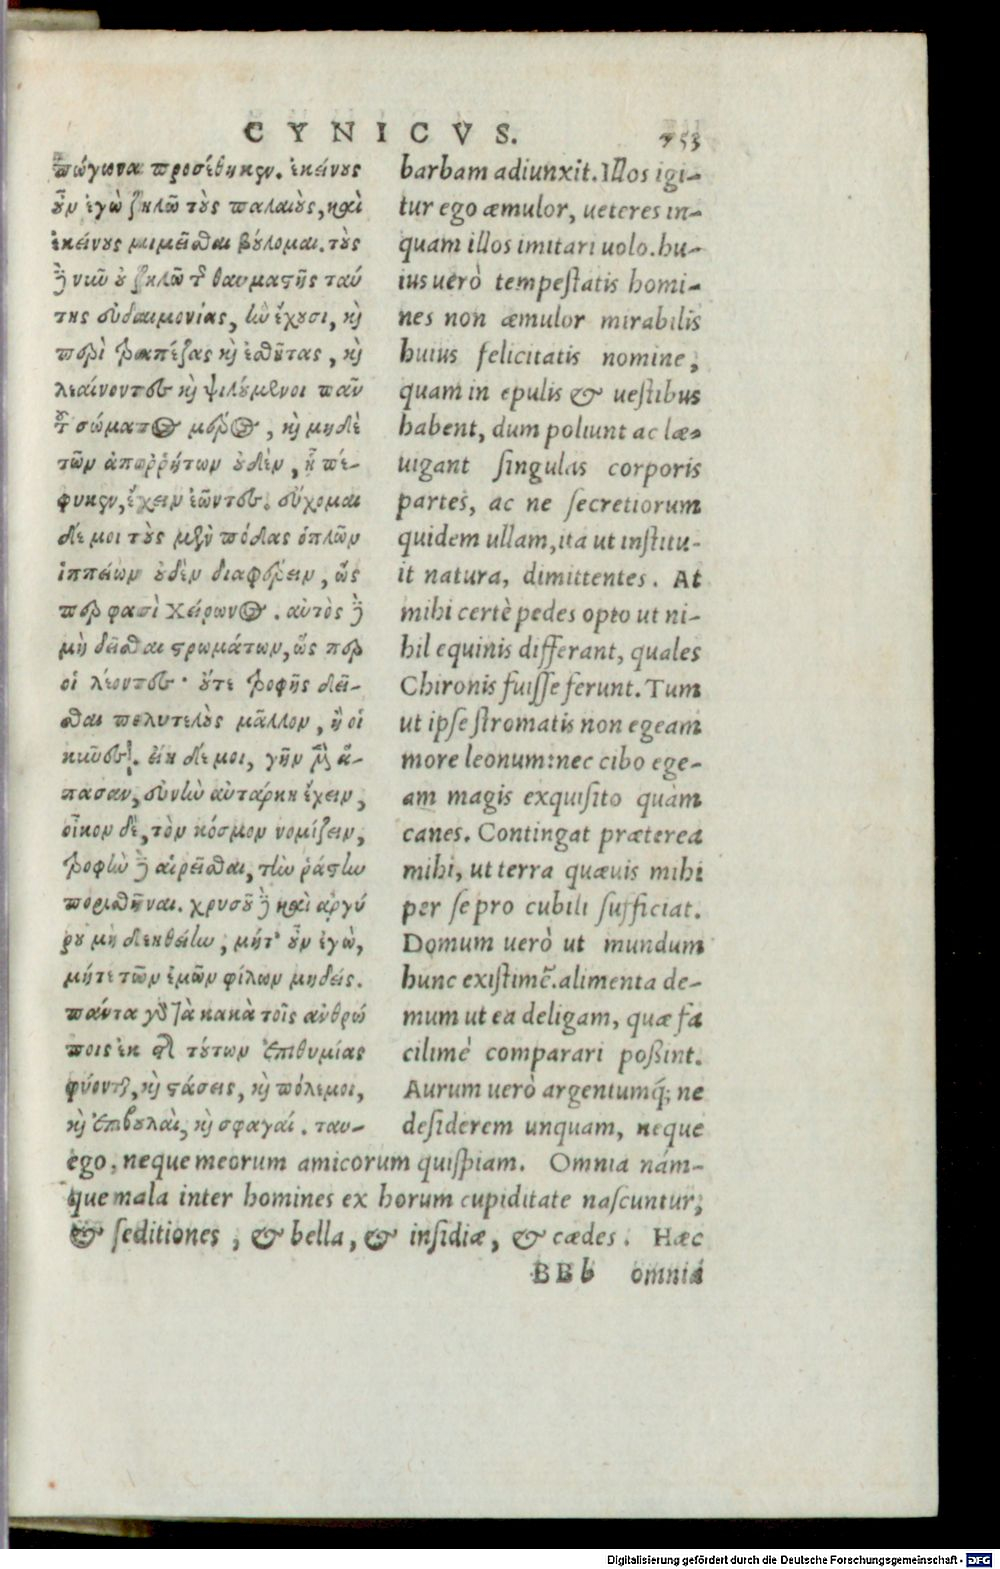 CYNICVS. 753
πώγωνα προσέθηκεν. ἐκείνους
οὖν ἐγὼ ζηλῶ τοὺς παλαιοὺς, καὶ
ἐκείνους μιμεῖσθαι βούλομαι. τοὺς
δὲ νῦν οὐ ζηλῶ τῆς θαυμαστῆς ταύ
της εὐδαιμονίας, ἣν ἔχουσι, καὶ
περὶ τραπέζας καὶ ἐσθῆτας, καὶ
λεαίνοντες καὶ ψιλούμενοι πᾶν
τοῦ σώματος μέρος, καὶ μηδὲ
τῶν ἀπορρήτων οὐδὲν, ᾗ πέ-
φυκεν, ἔχειν ἐῶντες. εὔχομαι
δέ μοι τοὺς μὲν πόδας ὁπλῶν
ἱππείων οὐδὲν διαφέρειν, ὥς
περ φασὶ Χείρωνος. αὐτὸς δὲ
μὴ δεῖσθαι στρωμάτων, ὥς περ
οἱ λέοντες· οὔτε τροφῆς δεῖ-
σθαι πολυτελοῦς μᾶλλον, ἢ οἱ
κύνες. εἴη δέ μοι, γῆν μὲν ἅ-
πασαν, εὐνὴν αὐτάρκη ἔχειν,
οἶκον δὲ, τὸν κόσμον νομίζειν,
τροφὴν δὲ αἱρεῖσθαι, τὴν ῥᾴστην
πορισθῆναι. χρυσοῦ δὲ καὶ ἀργύ
ρου μὴ δεηθείην, μήτ' οὖν ἐγὼ,
μήτε τῶν ἐμῶν φίλων μηδείς.
πάντα γὰρ τὰ κακὰ τοῖς ἀνθρώ
ποις ἐκ τῆς τούτων ἐπιθυμίας
φύονται, καὶ στάσεις, καὶ πόλεμοι,
καὶ ἐπιβουλαὶ, καὶ σφαγαί. ταυ-
barbam adiunxit. Illos igi-
tur ego æmulor, ueteres in-
quam illos imitari uolo. hu-
ius uerò tempestatis homi-
nes non æmulor mirabilis
huius felicitatis nomine,
quam in epulis & uestibus
habent, dum poliunt ac læ-
uigant singulas corporis
partes, ac ne secretiorum
quidem ullam, ita ut institu-
it natura, dimittentes. At
mihi certè pedes opto ut ni-
hil equinis differant, quales
Chironis fuisse ferunt. Tum
ut ipse stromatis non egeam
more leonum: nec cibo ege-
am magis exquisito quàm
canes. Contingat præterea
mihi, ut terra quæuis mihi
per se pro cubili sufficiat.
Domum uerò ut mundum
hunc existimẽ. alimenta de-
mum ut ea deligam, quæ fa
cilimè comparari possint.
Aurum uerò argentumq́; ne
desiderem unquam, neque
ego, neque meorum amicorum quispiam. Omnia nám-
que mala inter homines ex horum cupiditate nascuntur,
& seditiones, & bella, & insidiæ, & cædes. Hæc
BBb omnia
Digitalisierung gefördert durch die Deutsche Forschungsgemeinschaft - DFG